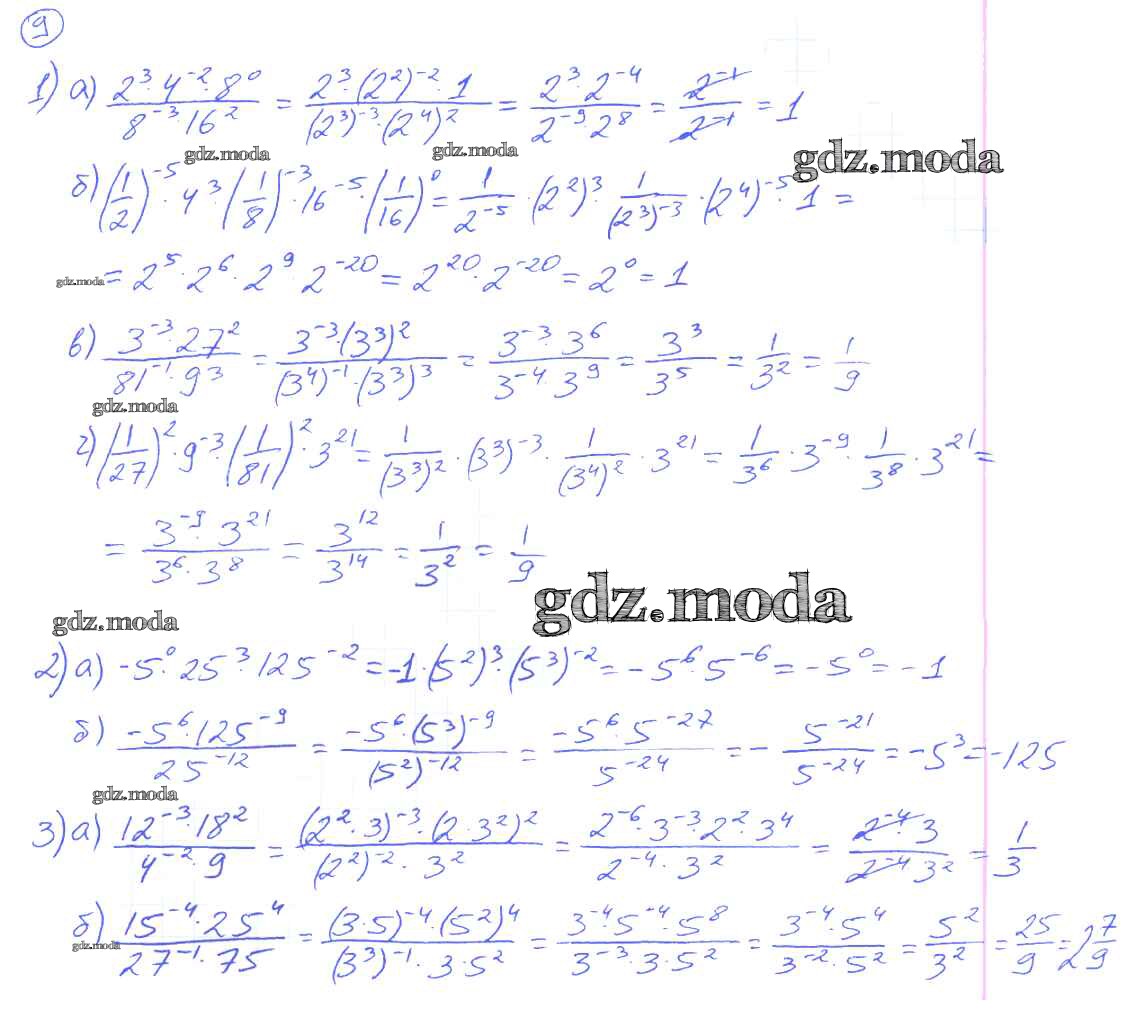 9
1) а) (2³·4⁻²·8⁰)/(8⁻³·16²) = (2³·(2²)⁻²·1)/((2³)⁻³·(2⁴)²) = (2³·2⁻⁴)/(2⁻⁹·2⁸) = 2⁻¹/2⁻¹ = 1
gdz.moda gdz.moda gdz.moda
б) (1/2)⁻⁵·4³·(1/8)⁻³·16⁻⁵·(1/16)⁰ = 1/2⁻⁵·(2²)³·1/(2³)⁻³·(2⁴)⁻⁵·1 =
gdz.moda = 2⁵·2⁶·2⁹·2⁻²⁰ = 2²⁰·2⁻²⁰ = 2⁰ = 1
в) (3⁻³·27²)/(81⁻¹·9³) = (3⁻³·(3³)²)/((3⁴)⁻¹·(3³)³) = (3⁻³·3⁶)/(3⁻⁴·3⁹) = 3³/3⁵ = 1/3² = 1/9
gdz.moda
г) (1/27)²·9⁻³·(1/81)²·3²¹ = 1/(3³)²·(3³)⁻³·1/(3⁴)²·3²¹ = 1/3⁶·3⁻⁹·1/3⁸·3²¹ =
= (3⁻⁹·3²¹)/(3⁶·3⁸) = 3¹²/3¹⁴ = 1/3² = 1/9
gdz.moda
gdz.moda
2) а) -5⁰·25³·125⁻² = -1·(5²)³·(5³)⁻² = -5⁶·5⁻⁶ = -5⁰ = -1
б) (-5⁶·125⁻⁹)/25⁻¹² = (-5⁶·(5³)⁻⁹)/(5²)⁻¹² = (-5⁶·5⁻²⁷)/5⁻²⁴ = - 5⁻²¹/5⁻²⁴ = -5³ = -125
gdz.moda
3) а) (12⁻³·18²)/(4⁻²·9) = ((2²·3)⁻³·(2·3²)²)/((2²)⁻²·3²) = (2⁻⁶·3⁻³·2²·3⁴)/(2⁻⁴·3²) = (2⁻⁴·3)/(2⁻⁴3²) = 1/3
б) (15⁻⁴·25⁴)/(27⁻¹·75) = ((3·5)⁻⁴·(5²)⁴)/((3³)⁻¹·3·5²) = (3⁻⁴5⁻⁴·5⁸)/(3⁻³·3·5²) = (3⁻⁴·5⁴)/(3⁻²·5²) = 5²/3² = 25/9 = 2 7/9
gdz.moda